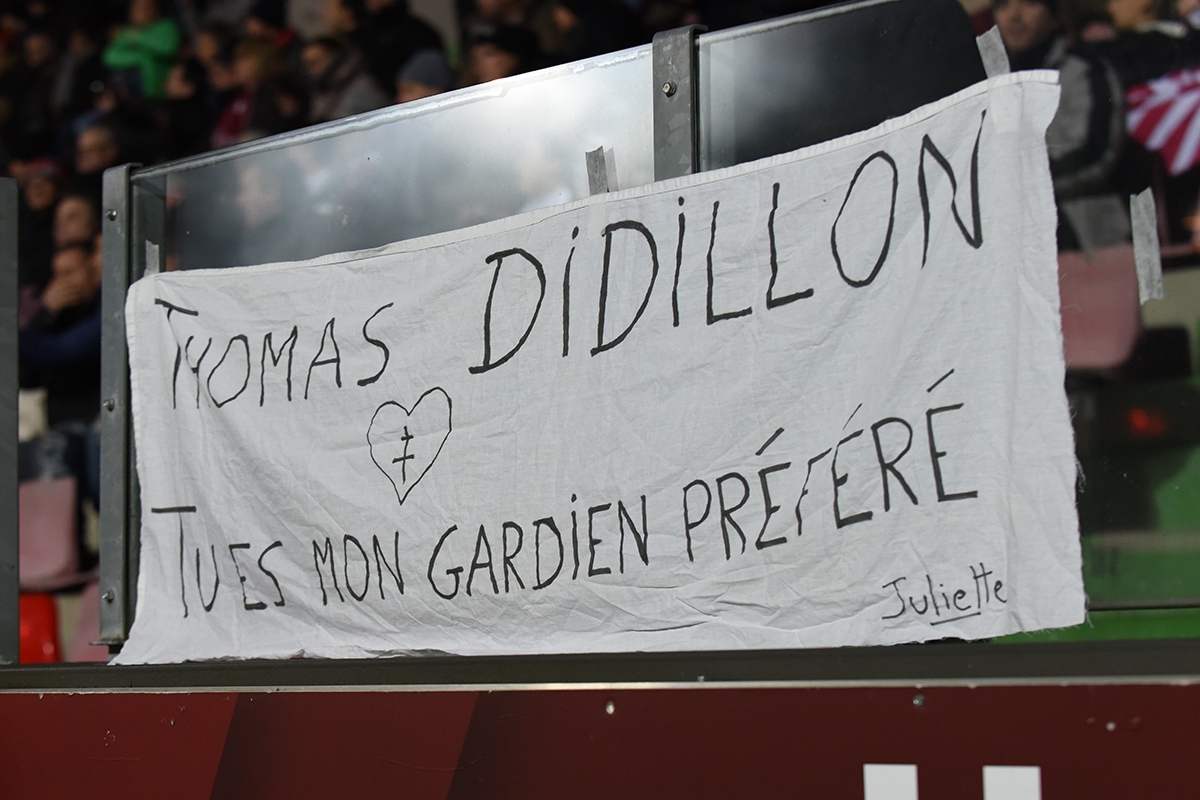 THOMAS DiDiLLON
TU ES MON GARDiEN PRÉFÉRÉ
Juliette